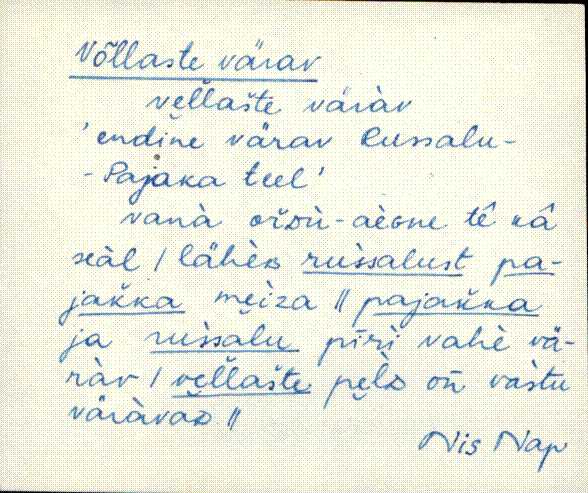 Võllaste värav
vell̆aš̆te väràv
'endine värav Russalu-
-Pajaka teel'
vanà orᴊù-aèɢne tê kâ
seàl / lähèʙ rùs̀salust pa-
jak̆ka meìza // pajak̆ka
ja rùs̀salu pīri vahè vä-
ràv / vell̆aš̆te pèlᴅ on̄ vàstu
väràvaᴅ //
Nis Nap